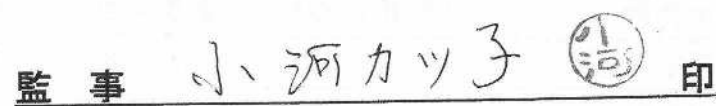 監事 小河カツ子 小河 印